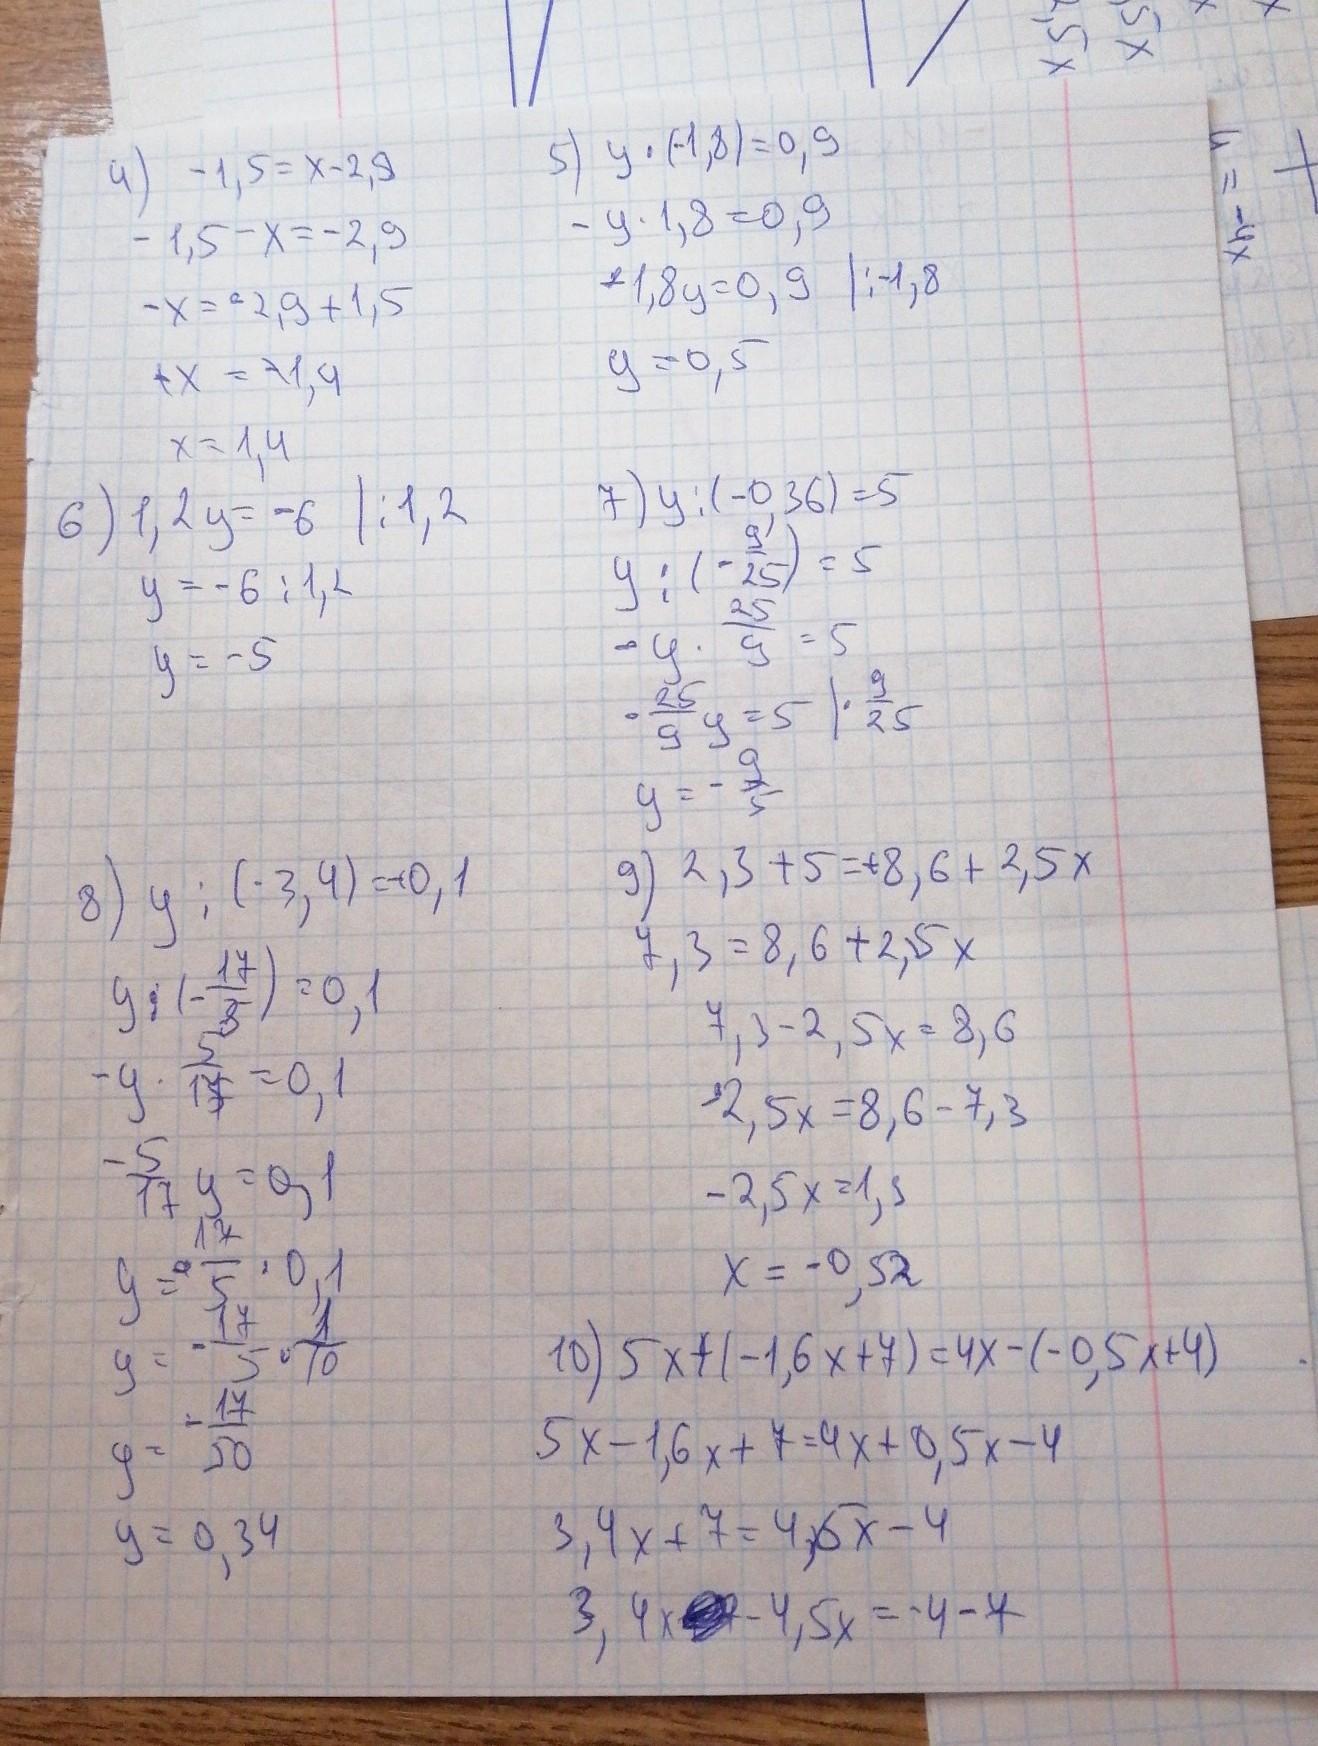 4) -1,5=x-2,9
-1,5-x=-2,9
-x=-2,9+1,5
+x=-1,4
x=1,4
5) y·(-1,8)=0,9
-y·1,8=0,9
-1,8y=0,9 |:-1,8
y=-0,5
6) 1,2y=-6 |:1,2
y=-6:1,2
y=-5
7) y:(-0,36)=5
y:(-9/25)=5
-y·25/9=5
-25/9 y=5 |·9/25
y=-9/5
8) y:(-3,4)=+0,1
y:(-17/3)=0,1
-y·5/17=0,1
-5/17 y=0,1
y=-17/5·0,1
y=-17/5·1/10
y=-17/50
y=0,34
9) 2,3+5=+8,6+2,5x
7,3=8,6+2,5x
7,3-2,5x=8,6
-2,5x=8,6-7,3
-2,5x=1,3
x=-0,52
10) 5x+(-1,6x+7)=4x-(-0,5x+4)
5x-1,6x+7=4x+0,5x-4
3,4x+7=4,5x-4
3,4x-4,5x=-4-7
,5x
,5x
x
x
y=-4x